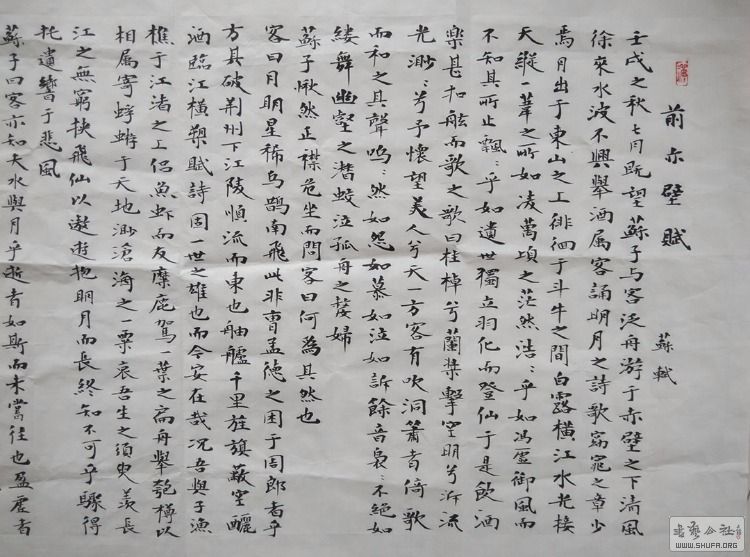 前赤壁賦
蘇軾
壬戌之秋七月既望蘇子与客泛舟游于赤壁之下清風
徐來水波不興舉酒属客誦明月之詩歌窈窕之章少
焉月出于東山之上徘徊于斗牛之間白露橫江水光接
天縱一葦之所如凌萬頃之茫然浩:乎如馮虛御風而
不知其所止飄:乎如遺世獨立羽化而登仙于是飲酒
樂甚扣舷而歌之歌曰桂棹兮蘭槳擊空明兮泝流
光渺:兮予懷望美人兮天一方客有吹洞簫者倚歌
而和之其聲嗚:然如怨如慕如泣如訴餘音裊:不絕如
縷舞幽壑之潛蛟泣孤舟之嫠婦
蘇子愀然正襟危坐而問客曰何為其然也
客曰月明星稀烏鵲南飛此非曹孟德之困于周郎者乎
方其破荊州下江陵順流而東也舳艫千里旌旗蔽空釃
酒臨江橫槊賦詩固一世之雄也而今安在哉况吾與子漁
樵于江渚之上侣魚虾而友麋鹿駕一葉之扁舟舉匏樽以
相屬寄蜉蝣于天地渺滄海之一粟哀吾生之須臾羨長
江之無窮挾飛仙以遨遊抱明月而長終知不可乎驟得
托遺響于悲風
蘇子曰客亦知夫水與月乎逝者如斯而未嘗往也盈虛者
书艺公社
WWW.SHUFA.ORG